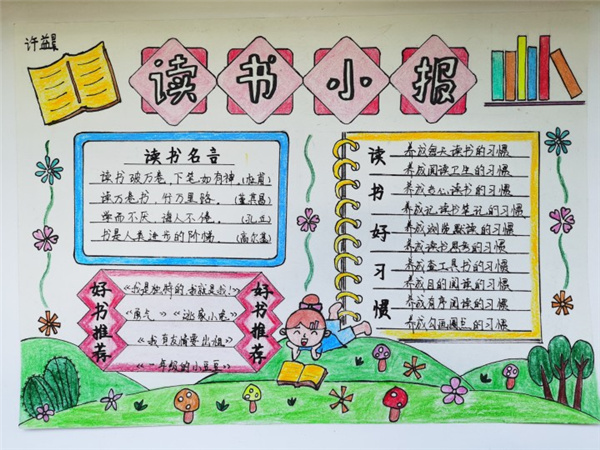 许益晨
读书小报
读书名言
读书破万卷,下笔如有神。(杜甫)
读万卷书,行万里路。(董其昌)
学而不厌,诲人不倦。(孔丘)
书是人类进步的阶梯。(高尔基)
好书推荐
《我是独特的,书就是我!》
《勇气》 《逃家小兔》
《我有友情要出租》
《一年级的小豆豆》
好书推荐
读书好习惯
养成每天读书的习惯
养成阅读卫生的习惯
养成专心读书的习惯
养成记读书笔记的习惯
养成浏览默读的习惯
养成读书思考的习惯
养成查工具书的习惯
养成目的阅读的习惯
养成有序阅读的习惯
养成勾画圈点的习惯